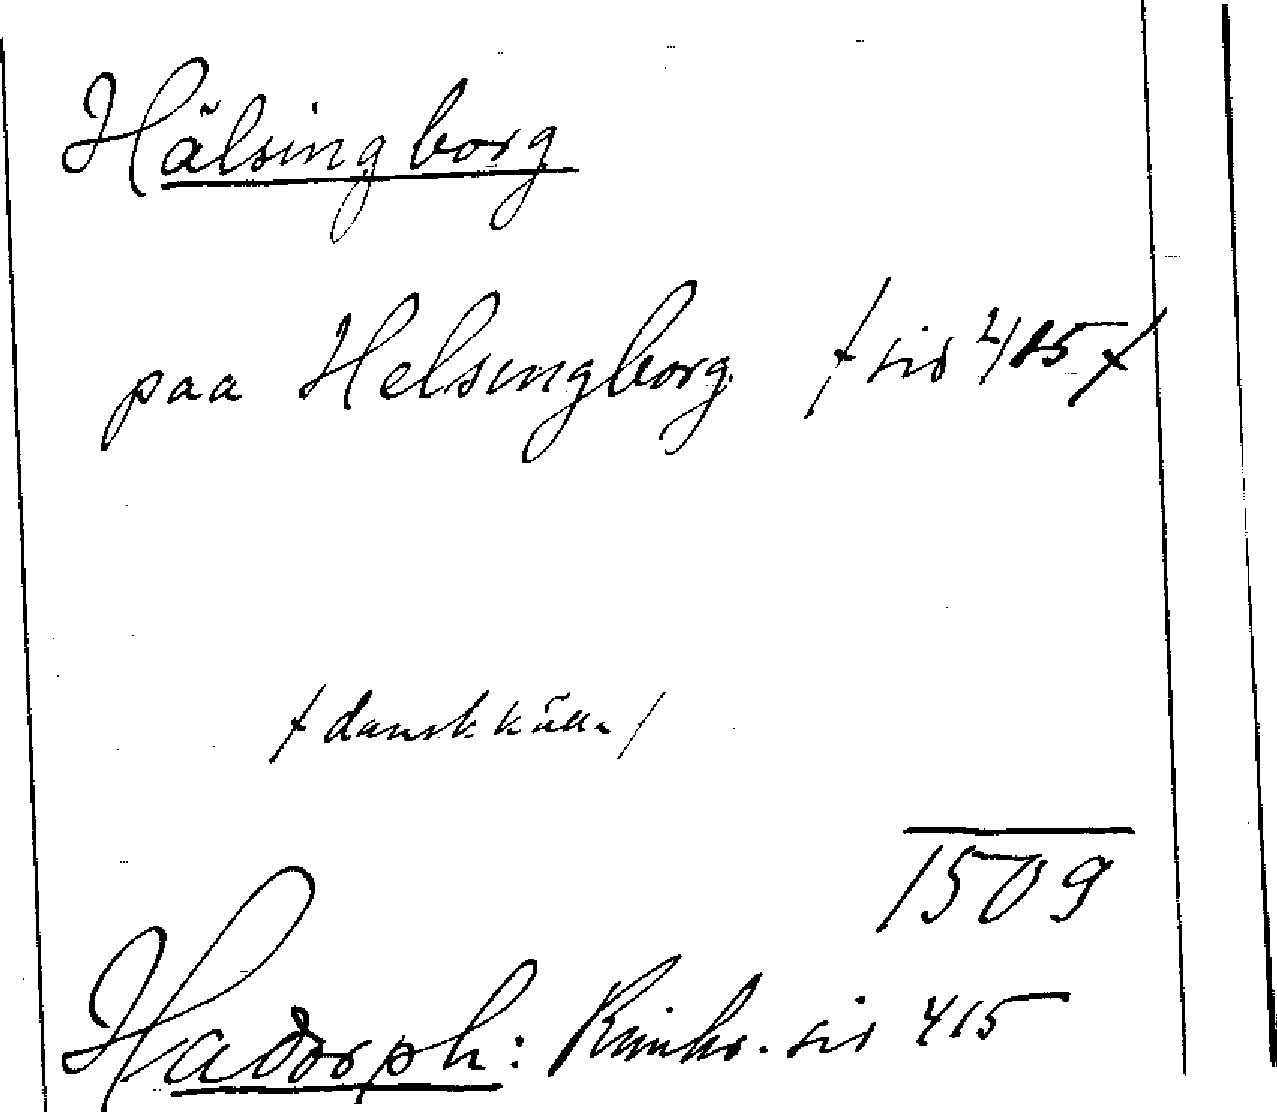 Hälsingborg
paa Helsingborg / sid 415 /
/ dansk käll. /
1509
Hadorph: Rimkr. sid 415